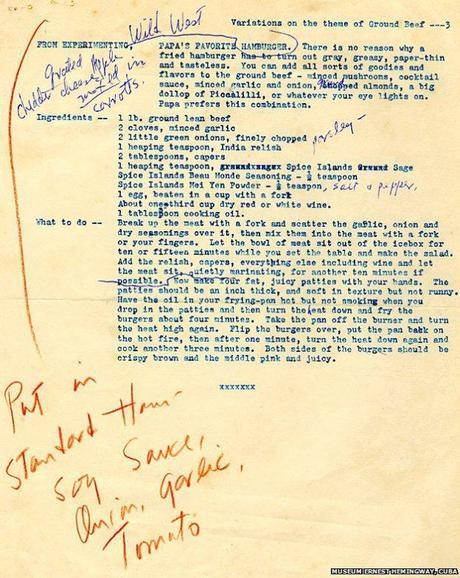 Variations on the theme of Ground Beef ---3
Wild West
FROM EXPERIMENTING PAPA'S FAVORITE HAMBURGER. There is no reason why a
fried hamburger has to turn out gray, greasy, paper-thin
and tasteless. You can add all sorts of goodies and
flavors to the ground beef - minced mushrooms, cocktail
sauce, minced garlic and onion, chopped almonds, a big
dollop of Piccalilli, or whatever your eye lights on.
Papa prefers this combination.
grated apple
cheddar cheese
in
carrots.
Ingredients -- 1 lb. ground lean beef
2 cloves, minced garlic
2 little green onions, finely chopped parsley-
1 heaping teaspoon, India relish
2 tablespoons, capers
1 heaping teaspoon, Spice Islands Sage
Spice Islands Beau Monde Seasoning - ½ teaspoon
Spice Islands Mei Yen Powder - ½ teaspoon, salt & pepper,
1 egg, beaten in a cup with a fork
About one-third cup dry red or white wine.
1 tablespoon cooking oil.
What to do -- Break up the meat with a fork and scatter the garlic, onion and
dry seasonings over it, then mix them into the meat with a fork
or your fingers. Let the bowl of meat sit out of the icebox for
ten or fifteen minutes while you set the table and make the salad.
Add the relish, capers, everything else including wine and let
the meat sit, quietly marinating, for another ten minutes if
possible. Now make four fat, juicy patties with your hands. The
patties should be an inch thick, and soft in texture but not runny.
Have the oil in your frying-pan hot but not smoking when you
drop in the patties and then turn the heat down and fry the
burgers about four minutes. Take the pan off the burner and turn
the heat high again. Flip the burgers over, put the pan back on
the hot fire, then after one minute, turn the heat down again and
cook another three minutes. Both sides of the burgers should be
crispy brown and the middle pink and juicy.
xxxxxxx
Put in
Standard Ham-
Soy Sauce,
Onion, garlic,
Tomato
MUSEUM ERNEST HEMINGWAY, CUBA